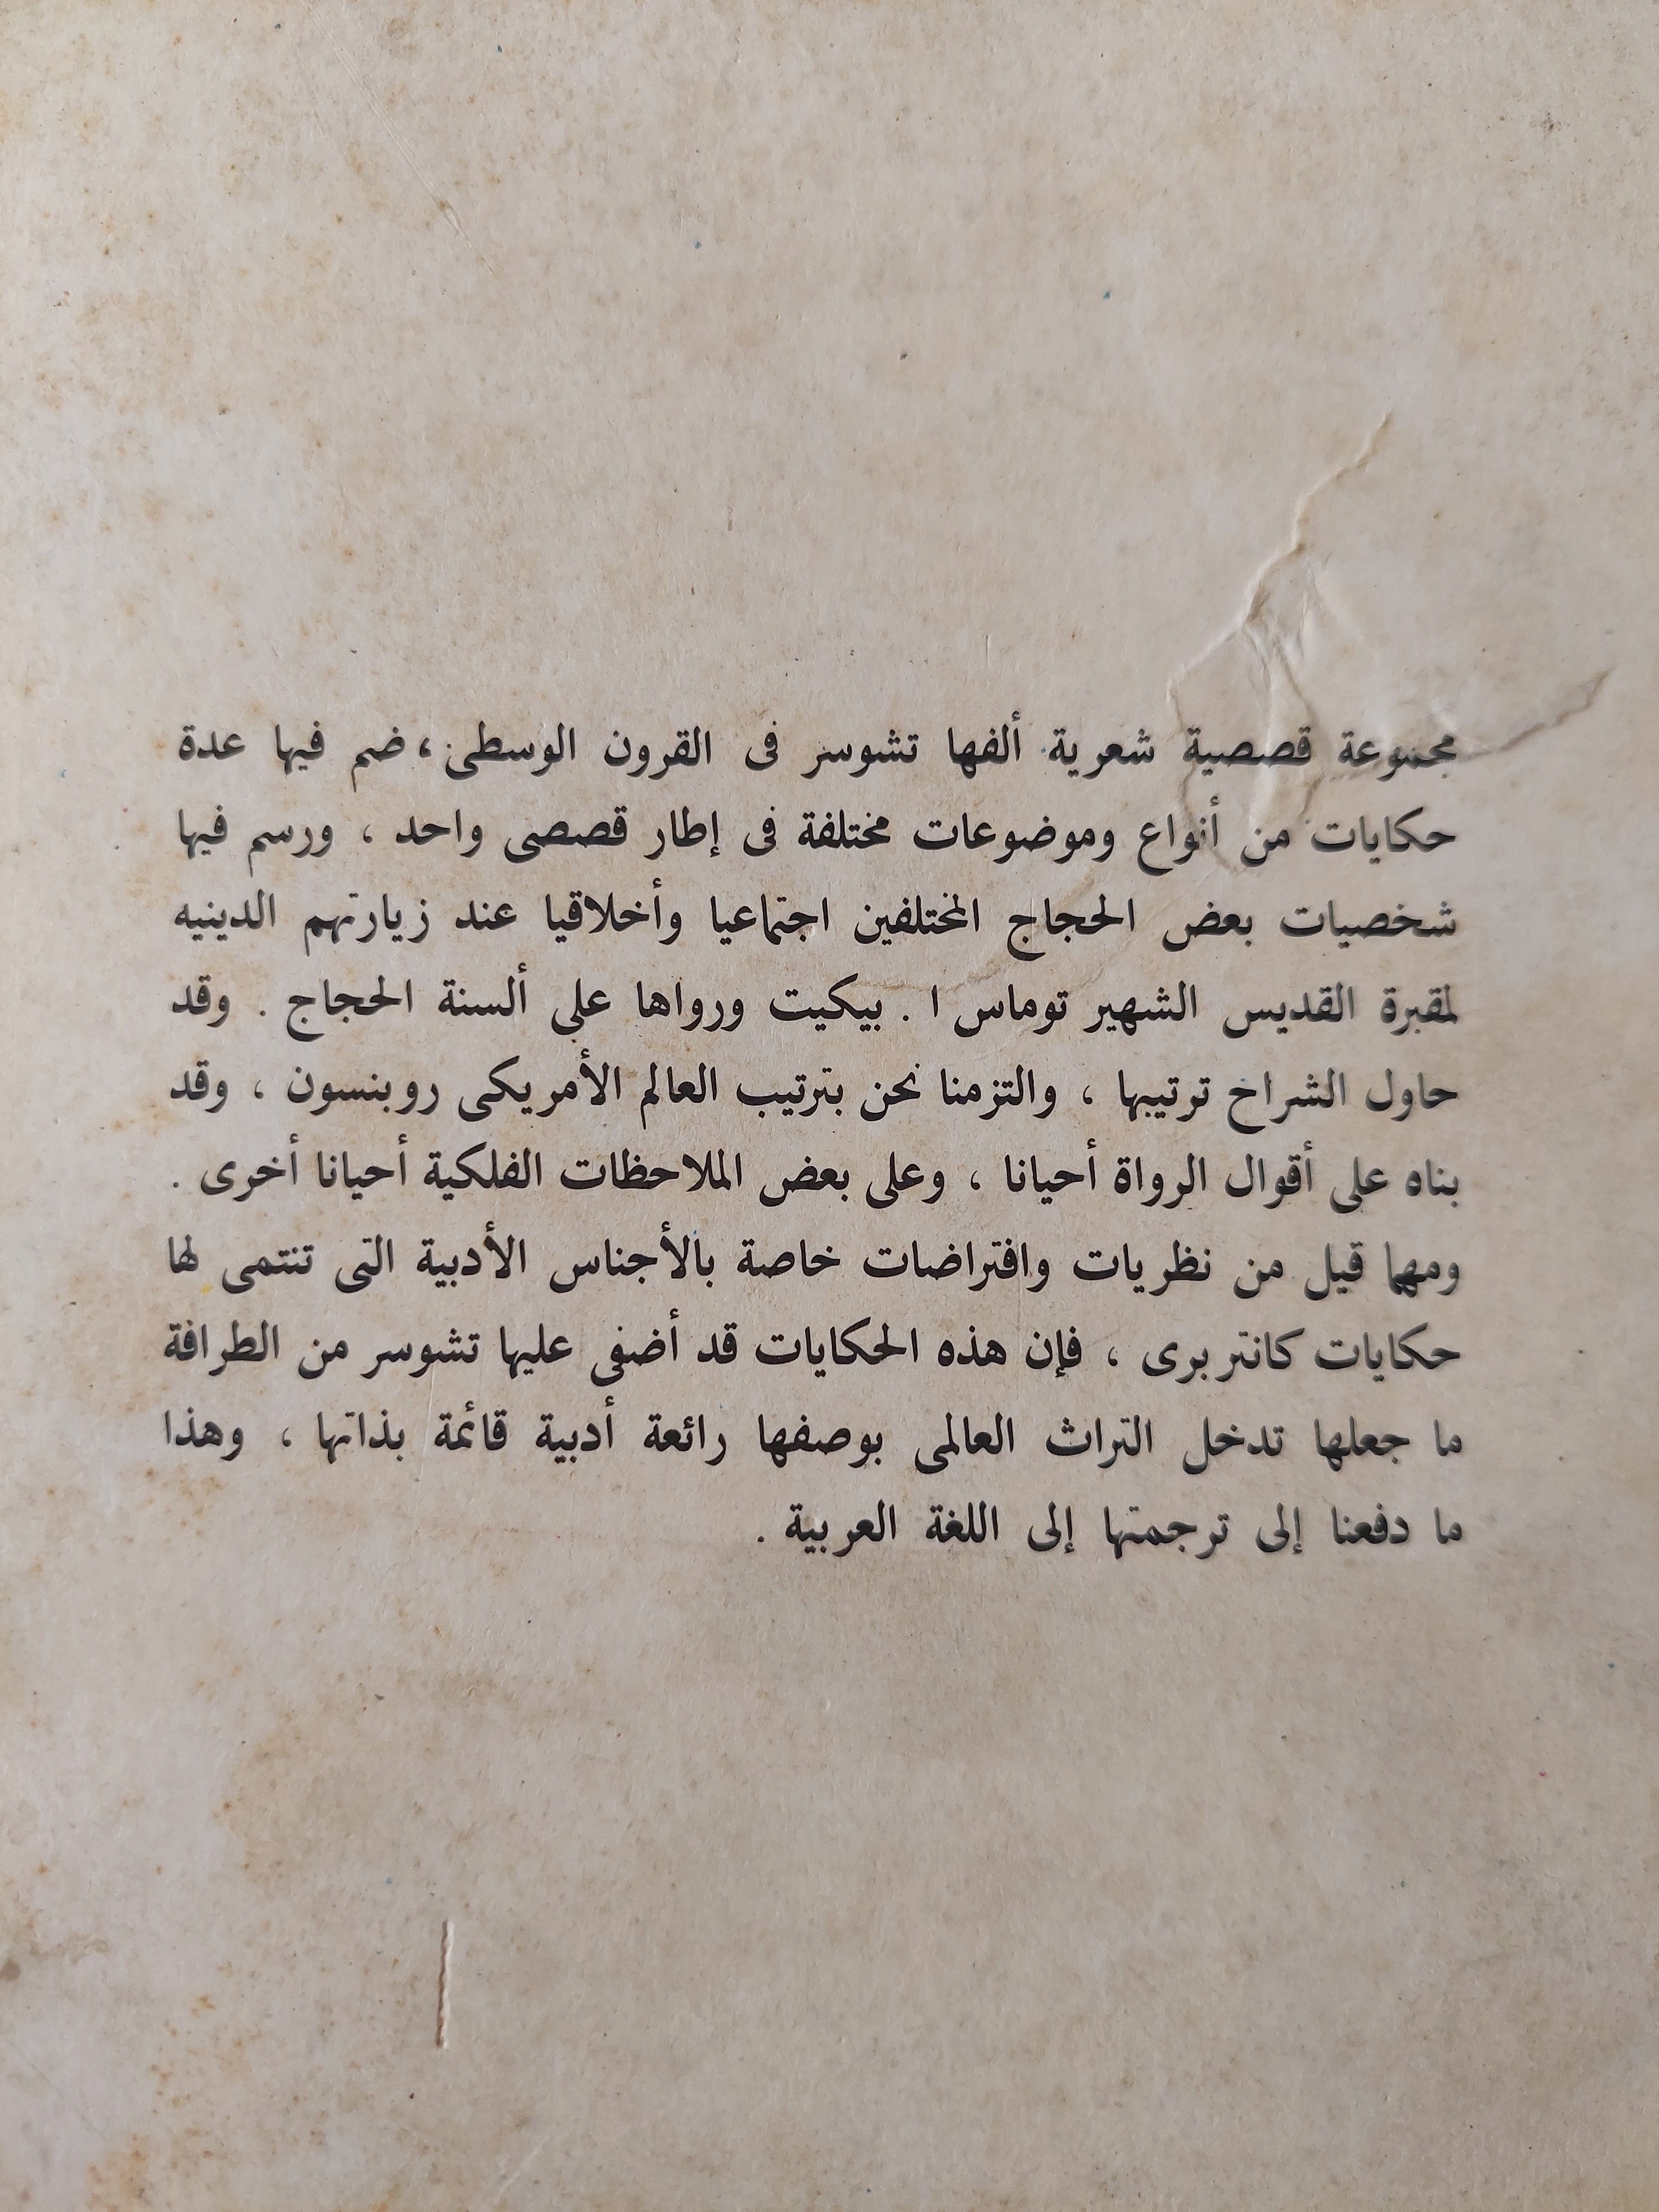 مجموعة قصصية شعرية ألفها تشوسر فى القرون الوسطى ، ضم فيها عدة
حكايات من أنواع وموضوعات مختلفة فى إطار قصصى واحد ، ورسم فيها
شخصيات بعض الحجاج المختلفين اجتماعيا وأخلاقيا عند زيارتهم الدينيه
لمقبرة القديس الشهير توماس ا . بيكيت ورواها على ألسنة الحجاج . وقد
حاول الشراخ ترتيبها ، والتزمنا نحن بترتيب العالم الأمريكى روبنسون ، وقد
بناه على أقوال الرواة أحيانا ، وعلى بعض الملاحظات الفلكية أحيانا أخرى .
ومهما قيل من نظريات وافتراضات خاصة بالأجناس الأدبية التى تنتمى لها
حكايات كانتربرى ، فإن هذه الحكايات قد أضفى عليها تشوسر من الطرافة
ما جعلها تدخل التراث العالمى بوصفها رائعة أدبية قائمة بذاتها ، وهذا
ما دفعنا إلى ترجمتها إلى اللغة العربية .